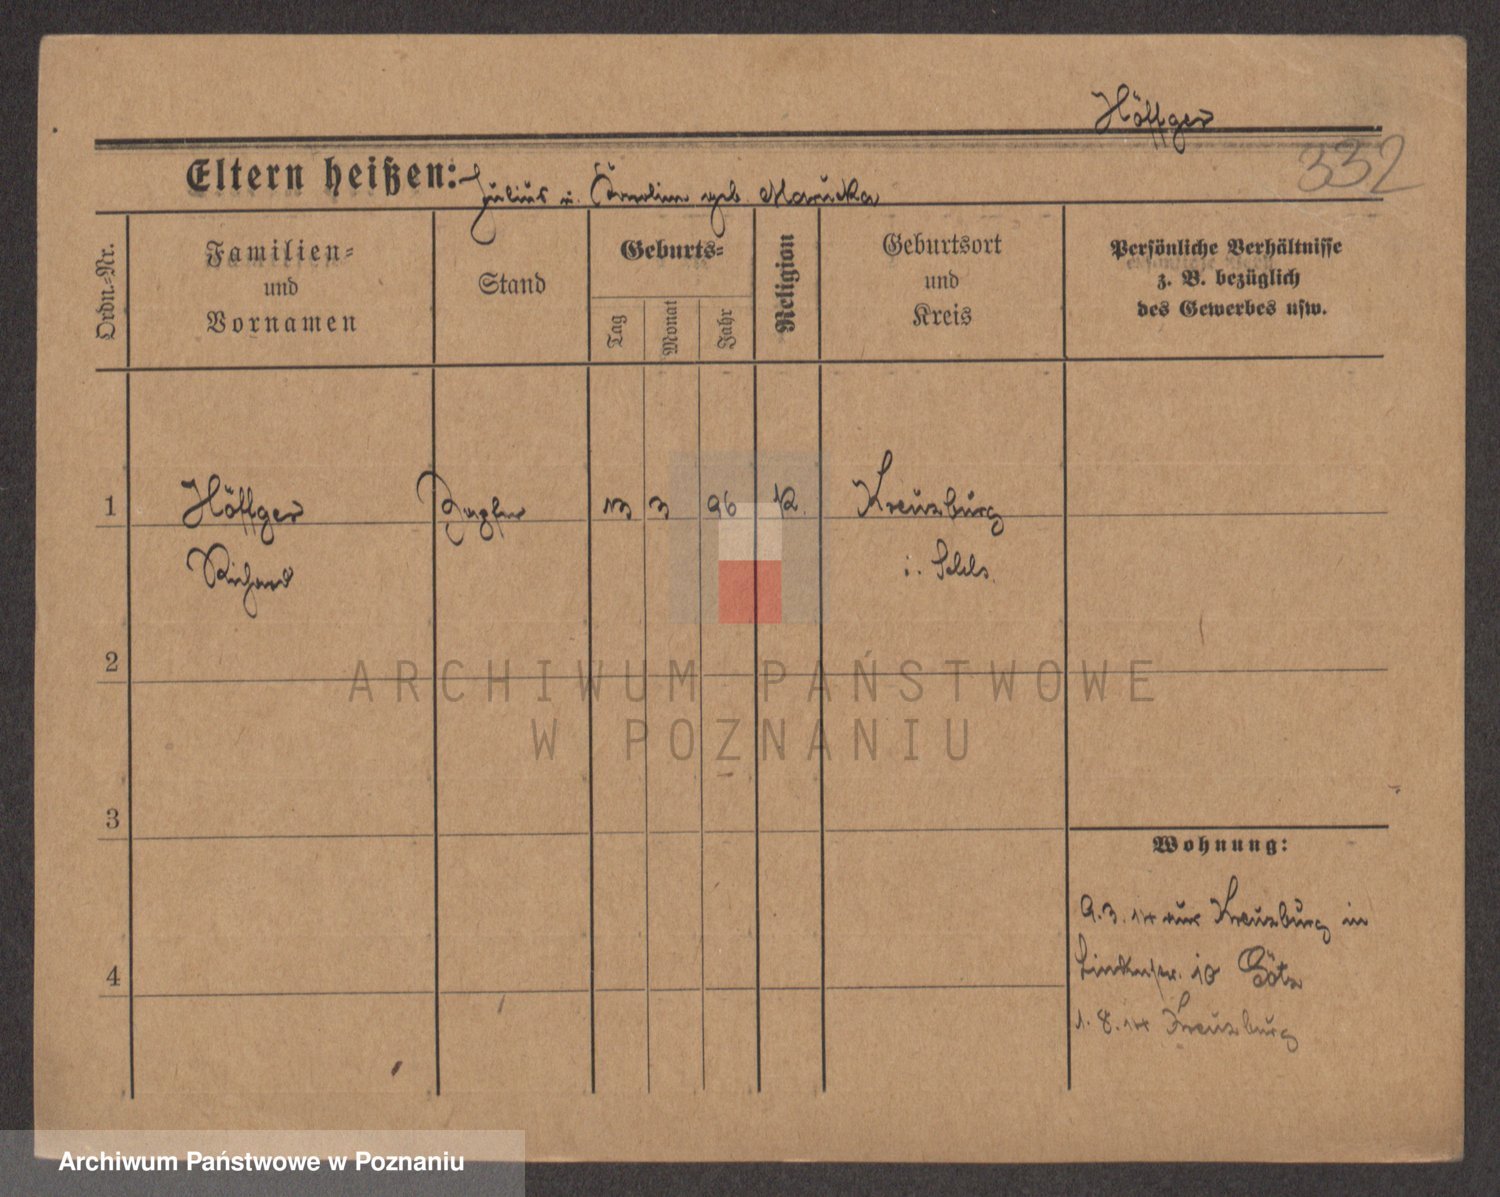 Höffger
332
Eltern heißen: Julius u. Karolina geb. Marucka
Ordn.-Nr.
Familien-
und
Vornamen
Stand
Geburts-
Tag
Monat
Jahr
Religion
Geburtsort
und
Kreis
Persönliche Verhältnisse
z. B. bezüglich
des Gewerbes usw.
1 Höffger 13 3 96 K. Kreuzburg
Richard i. Schls.
2
3
4
Wohnung:
9.3.14 aus Kreuzburg in
Lindenstr. 10 Götz
1.8.14 Kreuzburg
ARCHIWUM PAŃSTWOWE
W POZNANIU
Archiwum Państwowe w Poznaniu